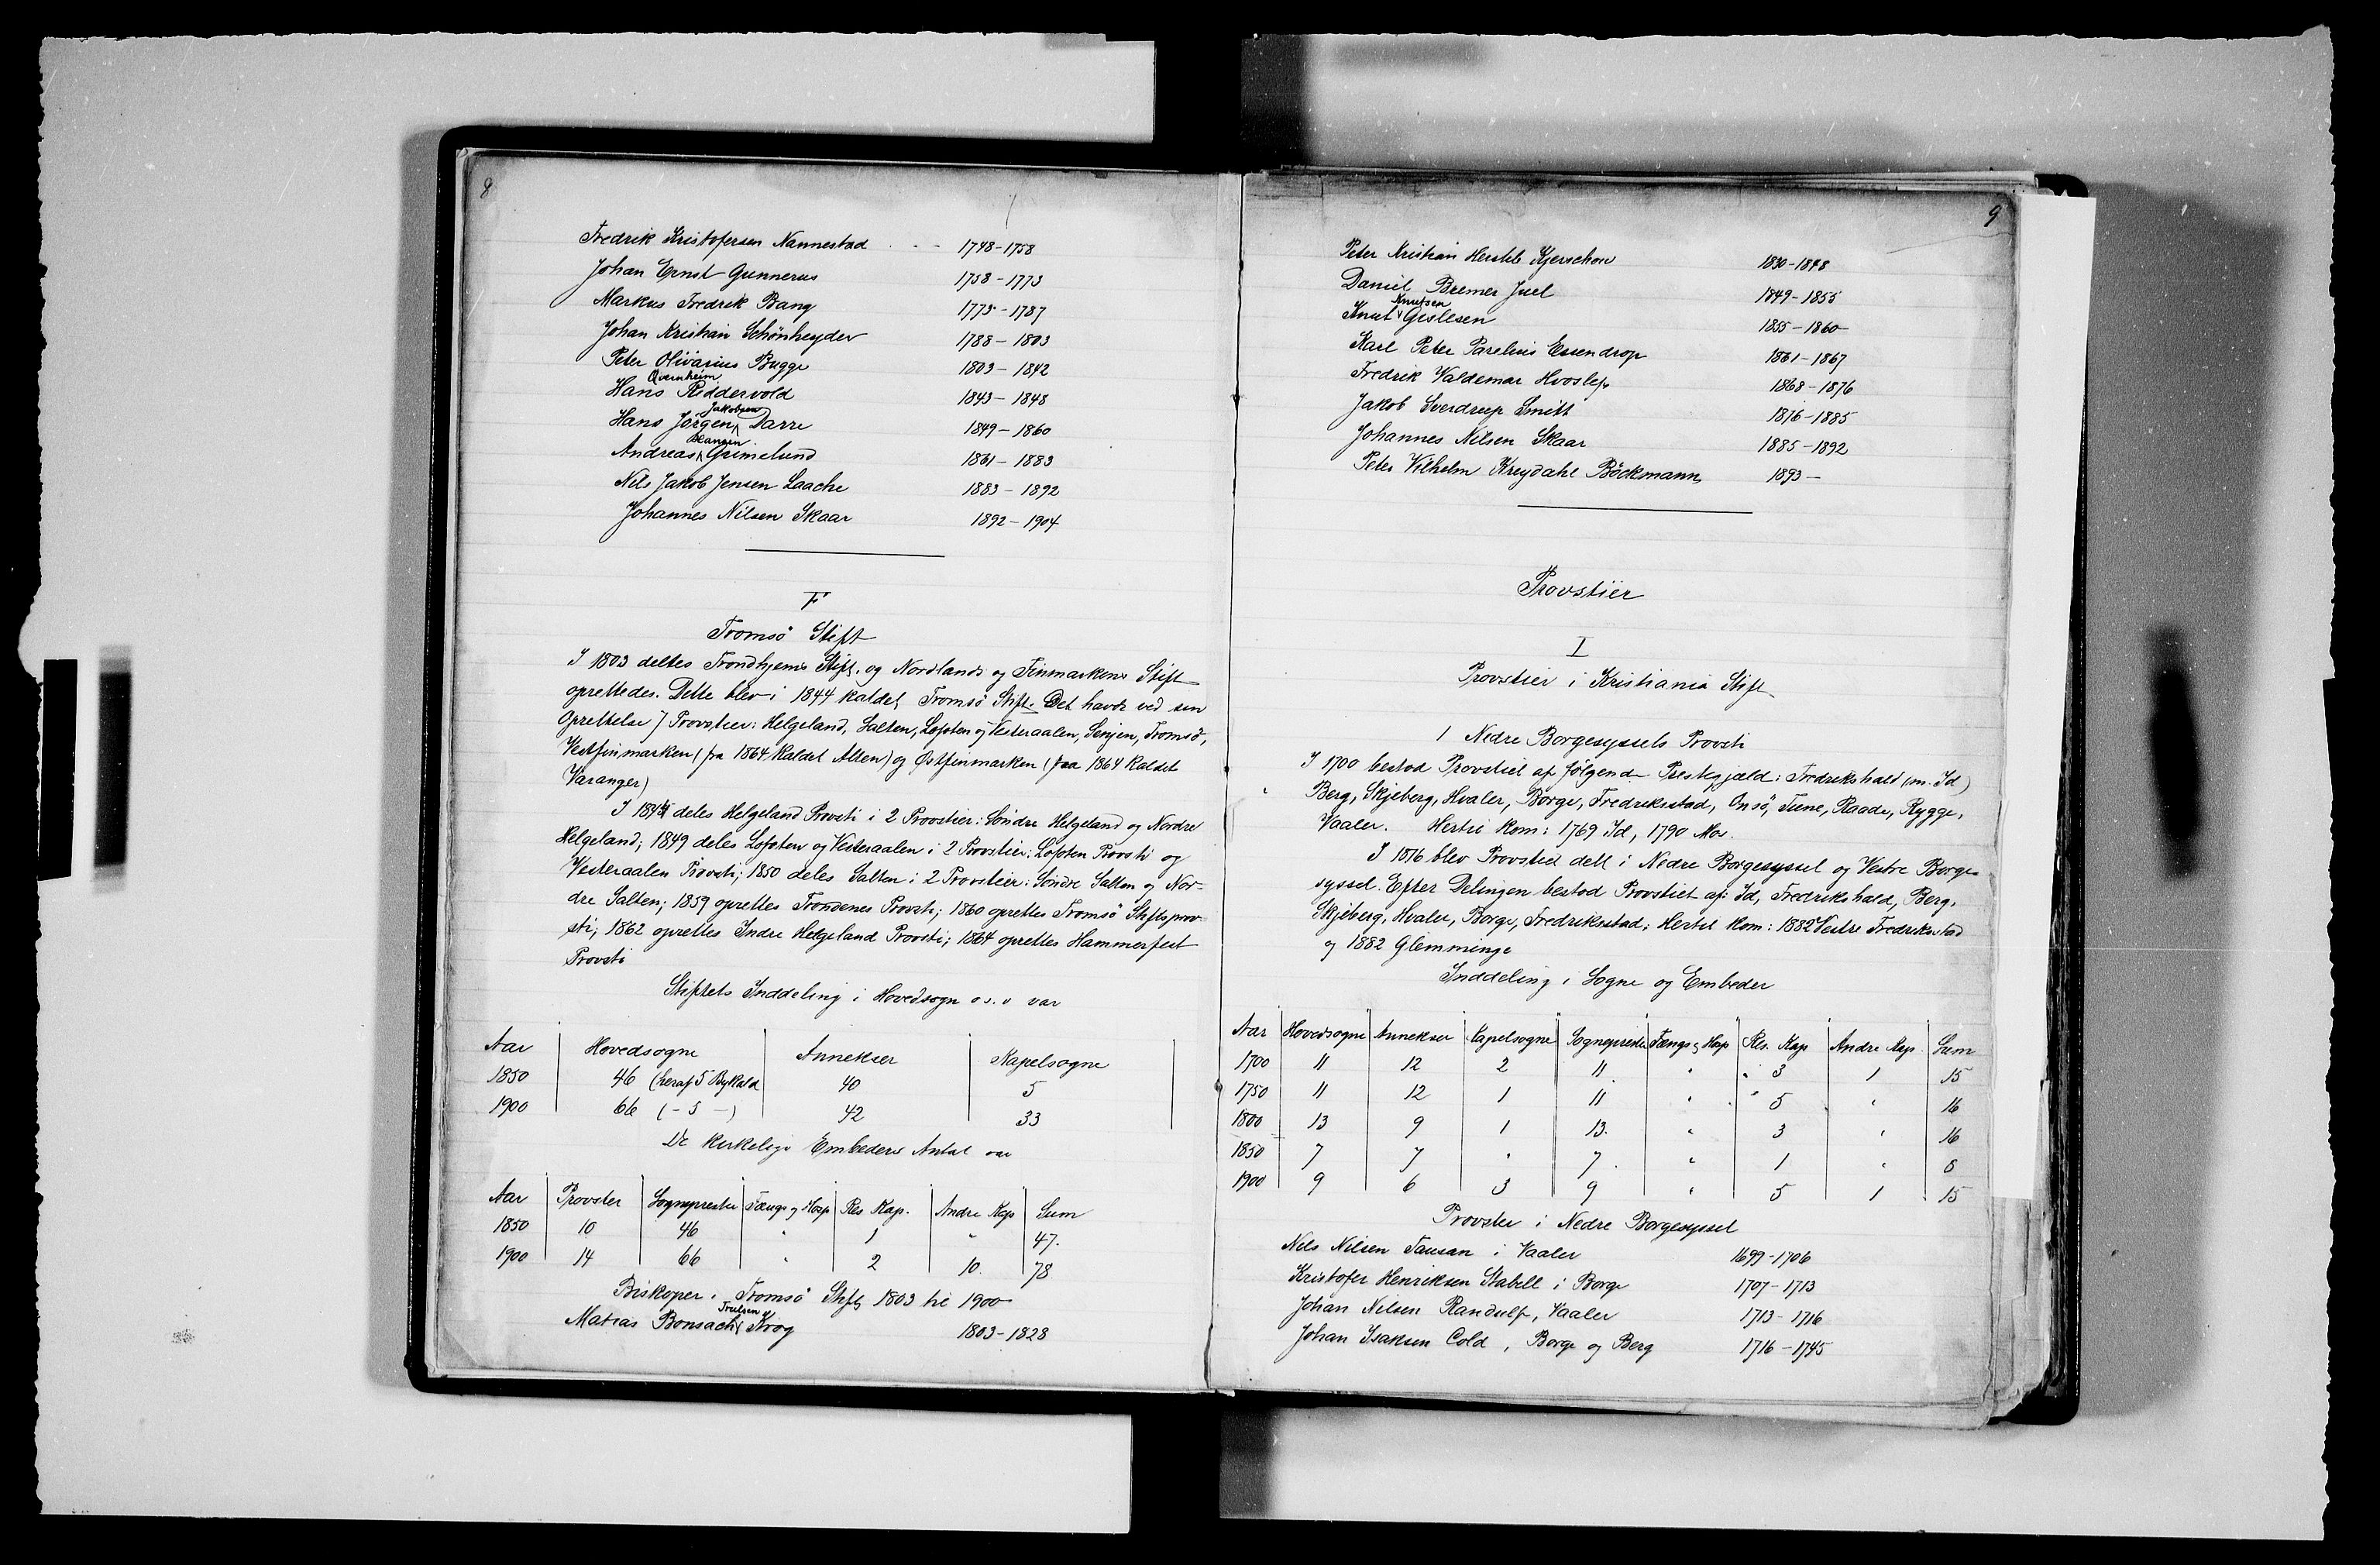 8
Fredrik Kristofersen Nannestad . . - 1748-1758
Johan Ernst Gunnerus 1758-1773
Markus Fredrik Bang 1773-1787
Johan Kristian Schönheyder 1788-1803
Peter Olivarius Bugge 1803-1842
Hans Qvernheim Riddervold 1843-1848
Hans Jörgen Jakobsen Darre 1849-1860
Andreas Grimelund 1861-1883
Nils Jakob Jensen Laache 1883-1892
Johannes Nilsen Skaar 1892-1904
F
Tromsö Stift
I 1803 deltes Trondhjems Stift, og Nordlands og Finmarkens Stift
oprettedes. Dette blev i 1844 kaldet Tromsö Stift. Det havde ved sin
Oprettelse 7 Provstier: Helgeland, Salten, Lofoten og Vesteraalen, Senjen, Tromsö,
Vestfinmarken (fra 1864 kaldet Alten) og Østfinmarken (fra 1864 kaldet
Varanger)
I 1844 deles Helgeland Provsti i 2 Provstier: Söndre Helgeland og Nordre
Helgeland; 1849 deles Lofoten og Vesteraalen i 2 Provstier: Lofoten Provsti og
Vesteraalen Provsti; 1850 deles Salten i 2 Provstier: Söndre Salten og Nor-
dre Salten; 1859 oprettes Trondenes Provsti; 1860 oprettes Tromsö Stiftsprov-
sti; 1862 oprettes Indre Helgeland Provsti; 1864 oprettes Hammerfest
Provsti
Stiftets Inddeling i Hovedsogn o.s.v var
Aar Hovedsogne Annekser Kapelsogne
1850 46 (heraf 5 Bykald 40 5
1900 66 (- 5 -) 42 33
De kirkelige Embeders Antal var
Aar Provster Sogneprester Fængs og Hosp Res Kap. Andre Kap Sum
1850 10 46 " 1 " 47.
1900 14 66 " 2 10. 78
Biskoper i Tromsö Stift 1803 til 1900
Matias Bonsach Trulsen Krog 1803-1828
9
Peter Kristian Hersleb Kjerschow 1830-1848
Daniel Bremer Juel 1849-1855
Knut Knutsen Gislesen 1855-1860
Karl Peter Parelius Essendrop 1861-1867
Fredrik Valdemar Hvoslef 1868-1876
Jakob Sverdrup Smitt 1876-1885
Johannes Nilsen Skaar 1885-1892
Peter Vilhelm Kreydahl Böckmann 1893-
Provstier
I
Provstier i Kristiania Stift
1 Nedre Borgesyssels Provsti
I 1700 bestod Provstiet af følgende Prestegjæld: Fredrikshald (m. Id)
Berg, Skjeberg, Hvaler, Borge, Fredriksstad, Onsö, Tune, Raade, Rygge,
Vaaler. Hertil kom: 1769 Id, 1790 Mos.
I 1816 blev Provstiet delt i Nedre Borgesyssel og Vestre Borge-
syssel. Efter Delingen bestod Provstiet af: Id, Fredrikshald, Berg,
Skjeberg, Hvaler, Borge, Fredriksstad; Hertil kom: 1882 Vestre Fredriksstad
og 1882 Glemminge
Inddeling i Sogne og Embeder
Aar Hovedsogne Annekser Kapelsogne Sogneprester Fængs og Hosp Res. Kap Andre Kap. Sum
1700 11 12 2 11. " " 3 1 15
1750 11 12 1 11 " " 5 " 16
1800 13 9 1 13. " 3 " 16
1850 7 7 " 7. " 1 " 8
1900 9 6 3 9 " 5 1 15
Provster i Nedre Borgesyssel
Nils Nilsen Tausan i Vaaler 1699-1706
Kristofer Henriksen Stabell i Borge 1707-1713
Johan Nilsen Randulf, Vaaler 1713-1716
Johan Isaksen Cold, Borge og Berg 1716-1745